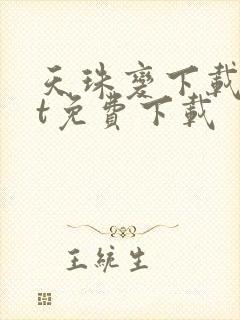 天珠變下載
t免費下載
王統生